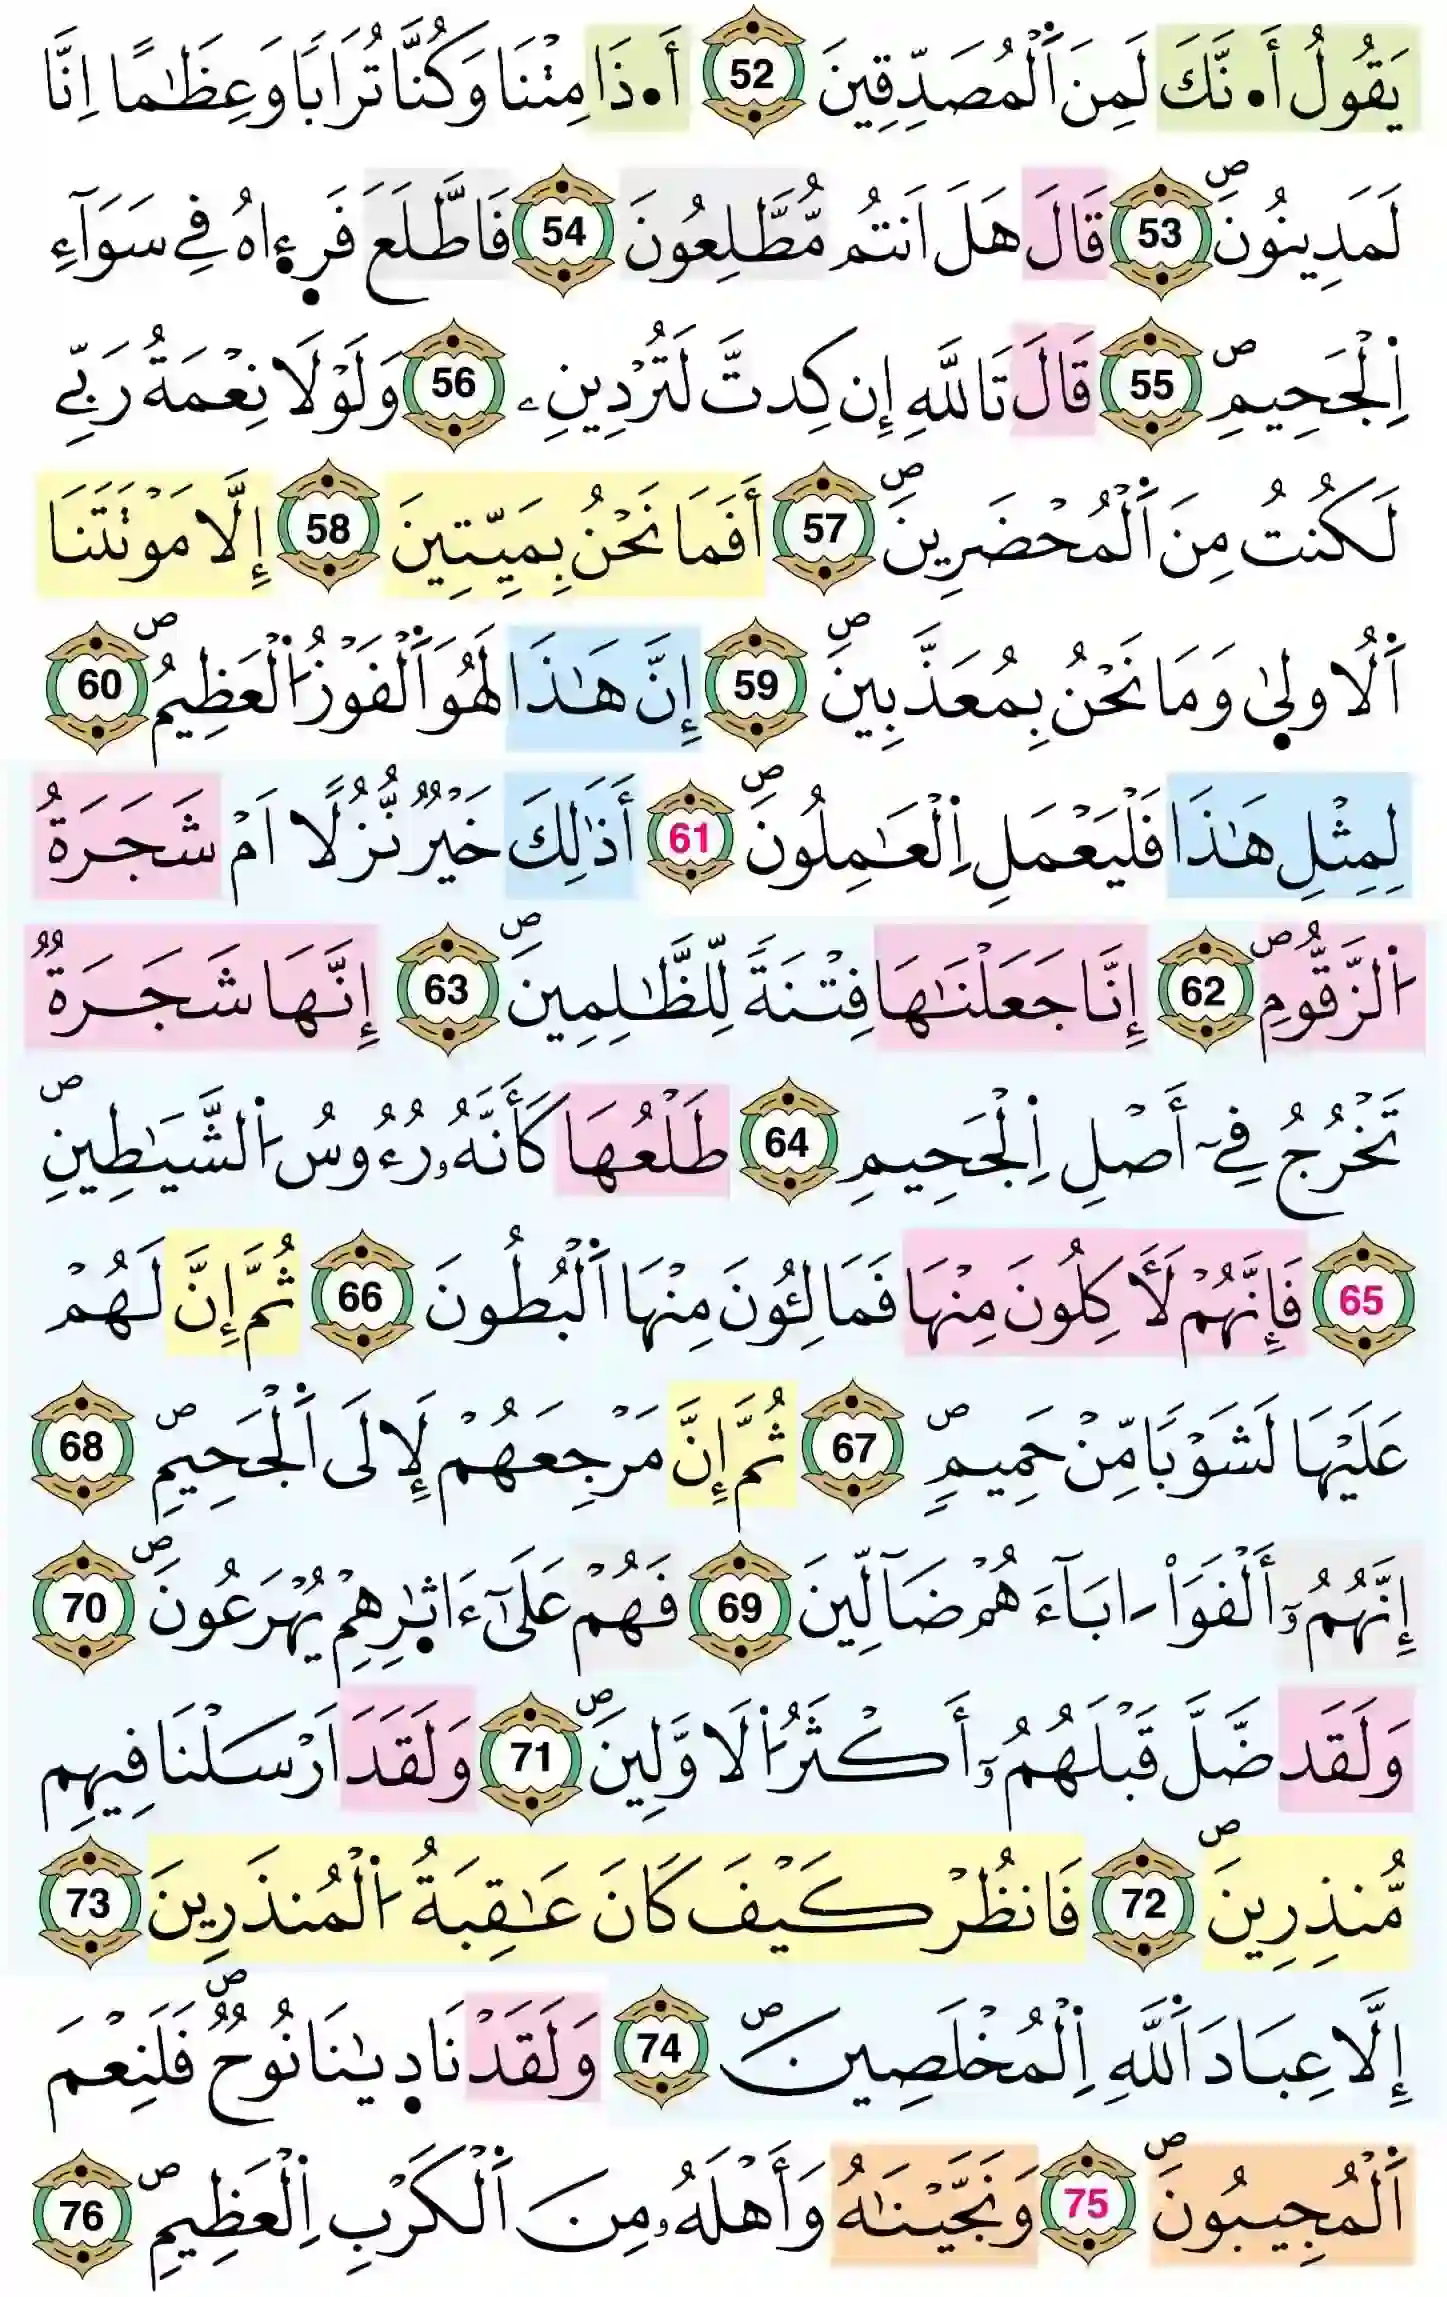 يَقُولُ أَ•نَّكَ لَمِنَ اَ۬لْمُصَدِّقِينَ 52 أَ•ذَا مِتْنَا وَكُنَّا تُرَابًا وَعِظَٰمًا اِنَّا
لَمَدِينُونَۖ 53 قَالَ هَلَ اَنتُم مُّطَّلِعُونَ 54 فَاطَّلَعَ فَرَءِاهُ فِے سَوَآءِ
اِ۬لْجَحِيمِۖ 55 قَالَ تَاللَّهِ إِن كِدتَّ لَتُرْدِينِۦ 56 وَلَوْلَا نِعْمَةُ رَبِّے
لَكُنتُ مِنَ اَ۬لْمُحْضَرِينَۖ 57 أَفَمَا نَحْنُ بِمَيِّتِينَ 58 إِلَّا مَوْتَتَنَا
اَ۬لُاولۭيٰ وَمَا نَحْنُ بِمُعَذَّبِينَۖ 59 إِنَّ هَٰذَا لَهُوَ اَ۬لْفَوْزُ اُ۬لْعَظِيمُۖ 60
لِمِثْلِ هَٰذَا فَلْيَعْمَلِ اِ۬لْعَٰمِلُونَۖ 61 أَذَٰلِكَ خَيْرٌ نُّزُلًا اَمْ شَجَرَةُ
اُ۬لزَّقُّومِۖ 62 إِنَّا جَعَلْنَٰهَا فِتْنَةً لِّلظَّٰلِمِينَۖ 63 إِنَّهَا شَجَرَةٌ
تَخْرُجُ فِےٓ أَصْلِ اِ۬لْجَحِيمِ 64 طَلْعُهَا كَأَنَّهُۥ رُءُوسُ اُ۬لشَّيَٰطِينِۖ
65 فَإِنَّهُمْ لَأٓكِلُونَ مِنْهَا فَمَالِـُٔونَ مِنْهَا اَ۬لْبُطُونَ 66 ثُمَّ إِنَّ لَهُمْ
عَلَيْهَا لَشَوْبًا مِّنْ حَمِيمٍۖ 67 ثُمَّ إِنَّ مَرْجِعَهُمْ لَإِلَى اَ۬لْجَحِيمِۖ 68
إِنَّهُمُۥٓ أَلْفَوَاْ اٰبَآءَهُمْ ضَآلِّينَ 69 فَهُمْ عَلَىٰٓ ءَاثٰ۪رِهِمْ يُهْرَعُونَۖ 70
وَلَقَد ضَّلَّ قَبْلَهُمُۥٓ أَكْثَرُ اُ۬لَاوَّلِينَۖ 71 وَلَقَدَ اَرْسَلْنَا فِيهِم
مُّنذِرِينَۖ 72 فَانظُرْ كَيْفَ كَانَ عَٰقِبَةُ اُ۬لْمُنذَرِينَ 73
إِلَّا عِبَادَ اَ۬للَّهِ اِ۬لْمُخْلَصِينَۖ 74 وَلَقَدْ نَادۭيٰنَا نُوحٌۖ فَلَنِعْمَ
اَ۬لْمُجِيبُونَۖ 75 وَنَجَّيْنَٰهُ وَأَهْلَهُۥ مِنَ اَ۬لْكَرْبِ اِ۬لْعَظِيمِۖ 76